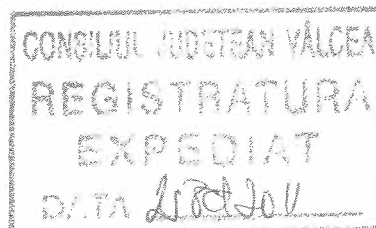 CONSILIUL JUDEȚEAN VÂLCEA
REGISTRATURA
EXPEDIAT
DATA